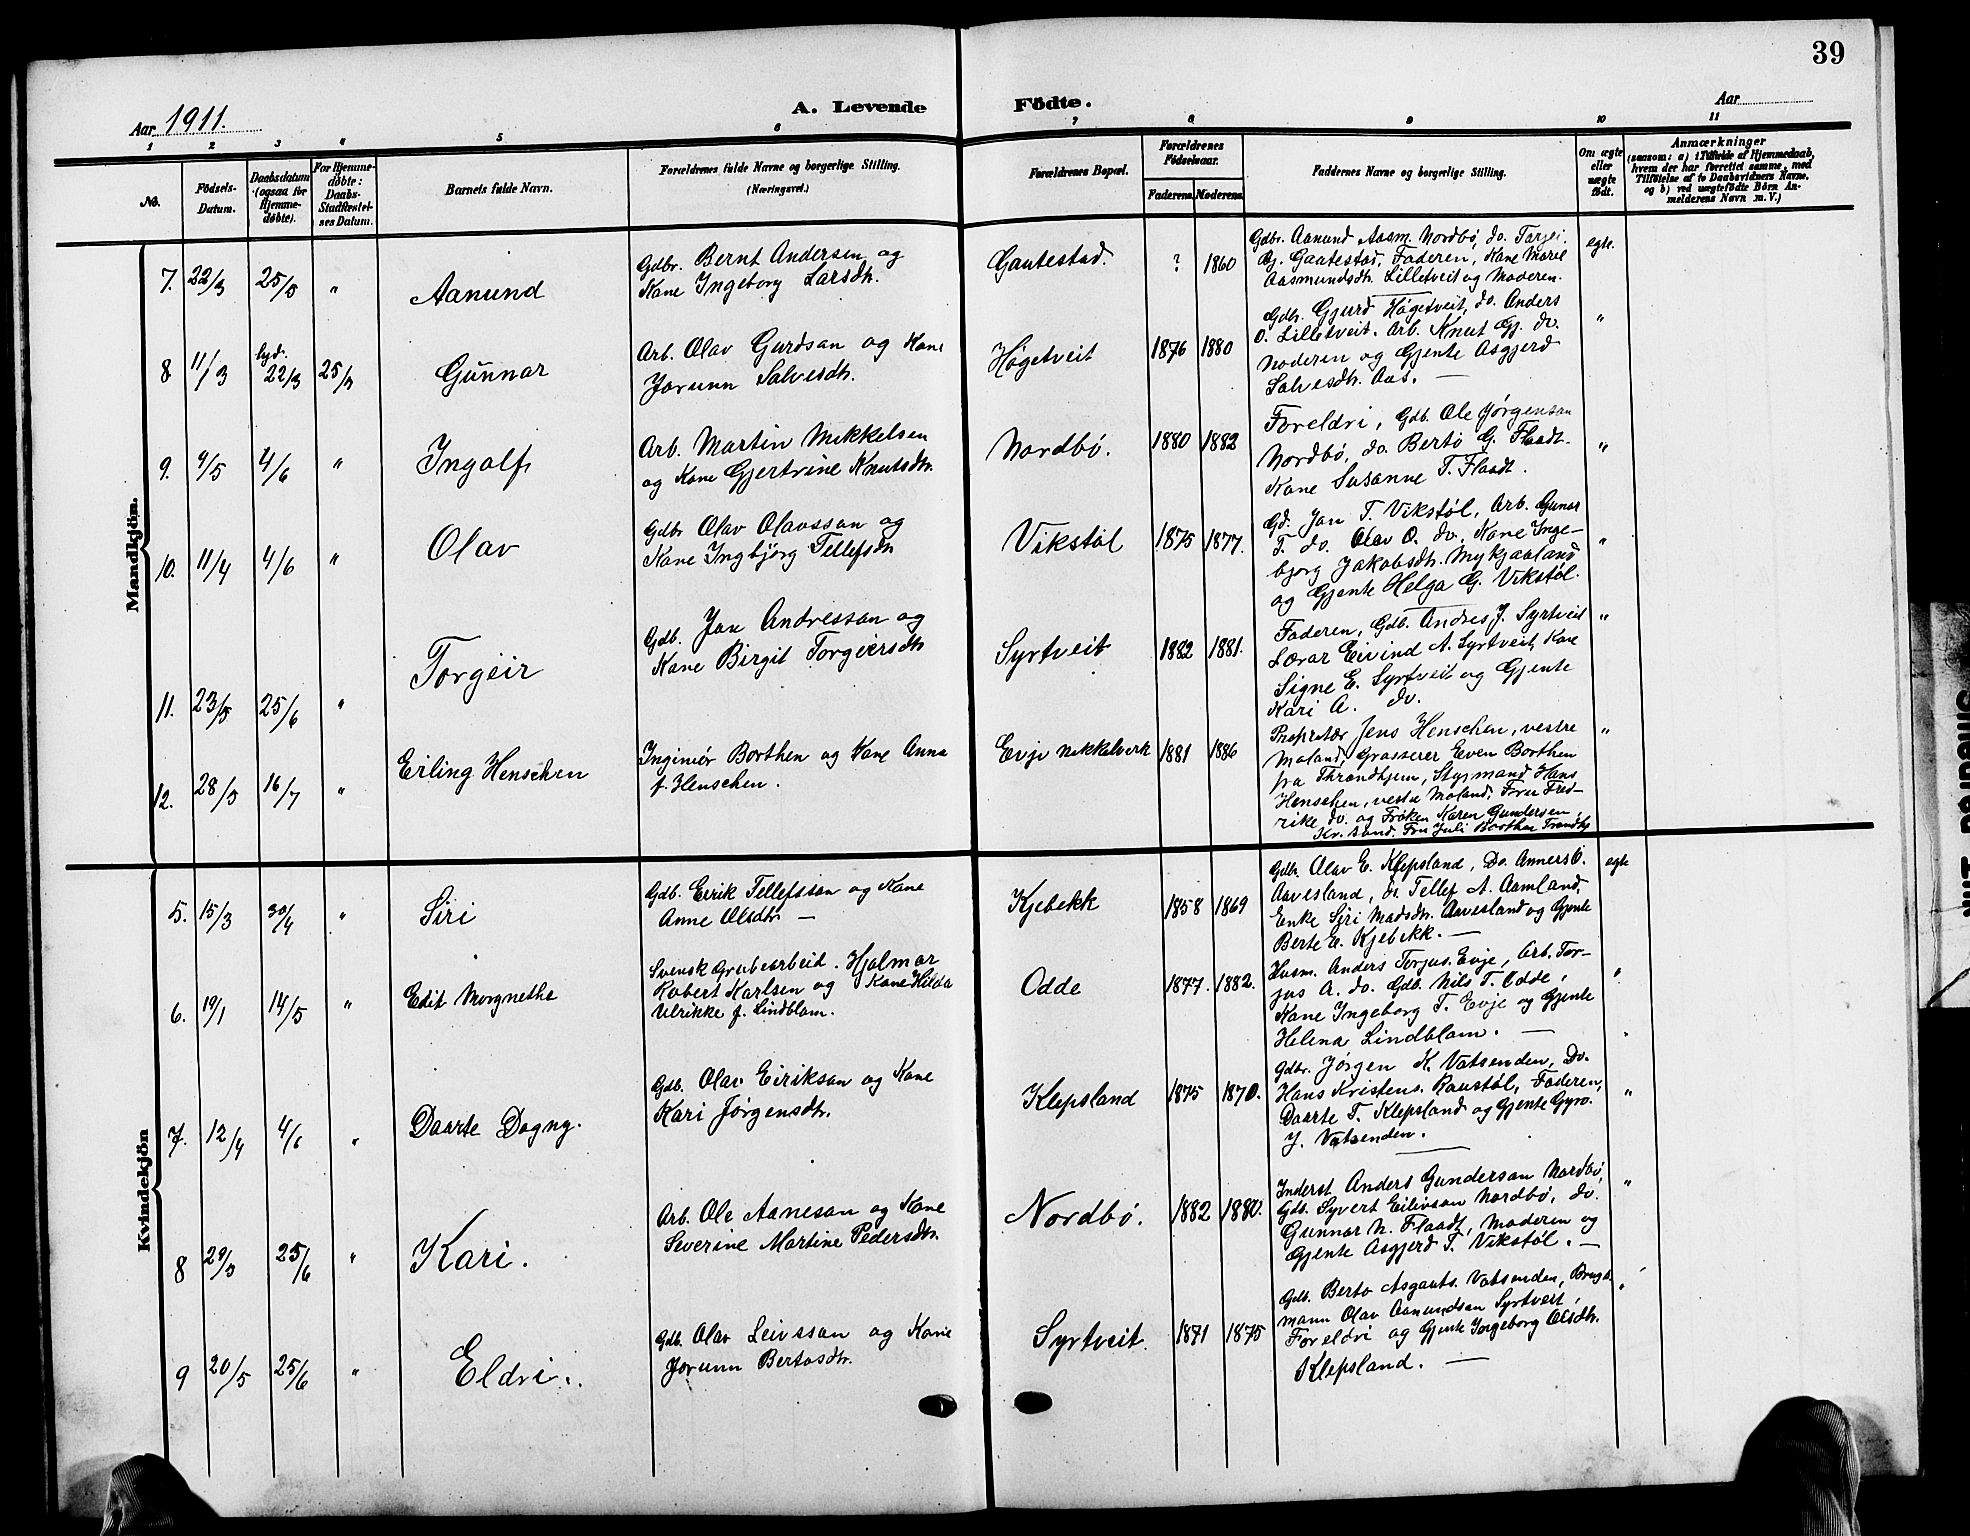 39
Aar 1911.
A. Levende
Födte.
Aar
1 2 3 4 5 6 7 8 9 10 11
No.
Födsels-
Datum.
Daabsdatum
(ogsaa for
Hjemme-
døbte).
For Hjemme-
døbte:
Daabs-
Stadfæstel-
ses Datum.
Barnets fulde Navn.
Forældrenes fulde Navne og borgerlige Stilling.
(Næringsvei.)
Forældrenes Bopæl.
Forældrenes
Fødselsaar.
Faderens. Moderens.
Faddernes Navne og borgerlige Stilling.
Om ægte
eller
uægte
født.
Anmærkninger
(saasom: a) i Tilfælde af Hjemmedaab,
hvem der har forrettet samme, med
Tilføielse af to Daabsvidners Navne,
og b) ved uægtefødte Børn An-
melderens Navn m. V.)
Mandkjön.
7. 22/3 25/5 " Aanund
Gdbr. Bernt Andersen og
Kone Ingeborg Larsdtr.
Gautestad. ? 1860
Gdbr. Aanund Aasm. Nordbø, do. Tarjei
Bj. Gaatestad, Faderen, Kone Marie
Aasmundsdtr. Lilletveit og Moderen.
egte.
8 11/3 22/3 25/5 Gunnar
Arb. Olav Gurdsan og Kone
Jorunn Salvesdtr.
Høgetveit 1876 1880
Gdbr. Gjurd Høgetveit, do. Anders
O. Lilletveit. Arb. Knut Gj. do.
Moderen og Gjente Asgjerd
Salvesdtr. Aas. —
"
9. 9/5 4/6 " Ingolf
Arb. Martin Mikkelsen
og Kone Gjertrine Knutsdtr.
Nordbø. 1880 1882
Foreldri, Gdb. Ole Jørgensan
Nordbø, do. Berto G. Flaadt.
Kone Susanne T. Flaadt.
"
10. 11/4 4/6 " Olav
Gdbr Olav Olavssan og
Kone Ingbjörg Tellefsdtr
Vikstøl 1875 1877.
Gd. Jon T. Vikstøl, Arb. Gunar
T. do. Olav O. do. Kone Inge-
bjorg Jakobsdtr. Mykjaaland
og Gjente Helga G. Vikstøl.
"
11. 23/5 25/6 " Torgeir
Gdb. Jon Andressan og
Kone Birgit Torgeirsdtr
Syrtveit 1882 1881.
Faderen, Gdb. Andres J. Syrtveit
Lærar Eivind A. Syrtveit, Kone
Signe E. Syrtveit og Gjente
Kari A. do.
"
12. 28/5 16/7 " Erling Henschen
Inginiör Borthen og Kone Anna
f. Henschen.
Evje nikkelverk 1881 1886
Propritær Jens Henschen, vestre
Moland, Grosserer Even Borthen
fra Throndhjem, Styrmand Hans
Henschen, vestre Moland, Fru Fred-
rike do. og Frøken Karen Gundersen,
Kr. sand. Fru Juli Borthen Trondhj.
"
Kvindekjön
5. 15/3 30/4 " Siri
Gdb. Eirik Tellefssan og Kone
Anne Olsdtr. —
Kjebekk 1858 1869
Gdbr. Olav E. Klepsland, Do. Anners O.
Aavesland, do. Tellef A. Aamland,
Enke Siri Madsdtr. Aavesland og Gjente
Berte E. Kjebekk. —
egte
6. 19/1 14/5 " Edit Morgnetha
Svensk Grubearbeid. Hjalmar
Robert Karlsen og Kone Hilda
Ulrikke f. Lindblam.
Odde 1877. 1882.
Husm. Anders Torjus. Evje, Arb. Tor-
jus A. do. Gdb. Nils T. Odde,
Kone Ingeborg T. Evje og Gjente
Helena Lindblam. —
"
7. 12/4 4/6 " Daarte Dagny.
Gdb. Olav Eiriksan og Kone
Kari Jørgensdtr.
Klepsland 1875 1870.
Gdbr. Jørgen K. Vatsenden, Do.
Hans Kristens. Raustøl, Faderen,
Daarte T. Klepsland og Gjente Gyro.
J. Vatsenden.
"
8 29/5 25/6 " Kari.
Arb. Ole Aanesan og Kone
Severine Martine Pedersdtr.
Nordbø. 1882 1880.
Inderst Anders Gundersan Nordbø,
Gdb. Syvert Eilivsan Nordbø, do.
Gunnar N. Flaadt, Moderen og
Gjente Asgjerd T. Vikstøl. —
"
9 20/5 25/6 " Eldri.
Gdb. Olav Leivssan og Kone
Jorunn Bertosdtr.
Syrtveit. 1871 1875
Gdb. Berto Asgauts. Vatsenden, Brugs.
mann Olav Aanundsan Syrtveit,
Foreldri og Gjente Ingeborg Olsdtr.
Klepsland. —
"